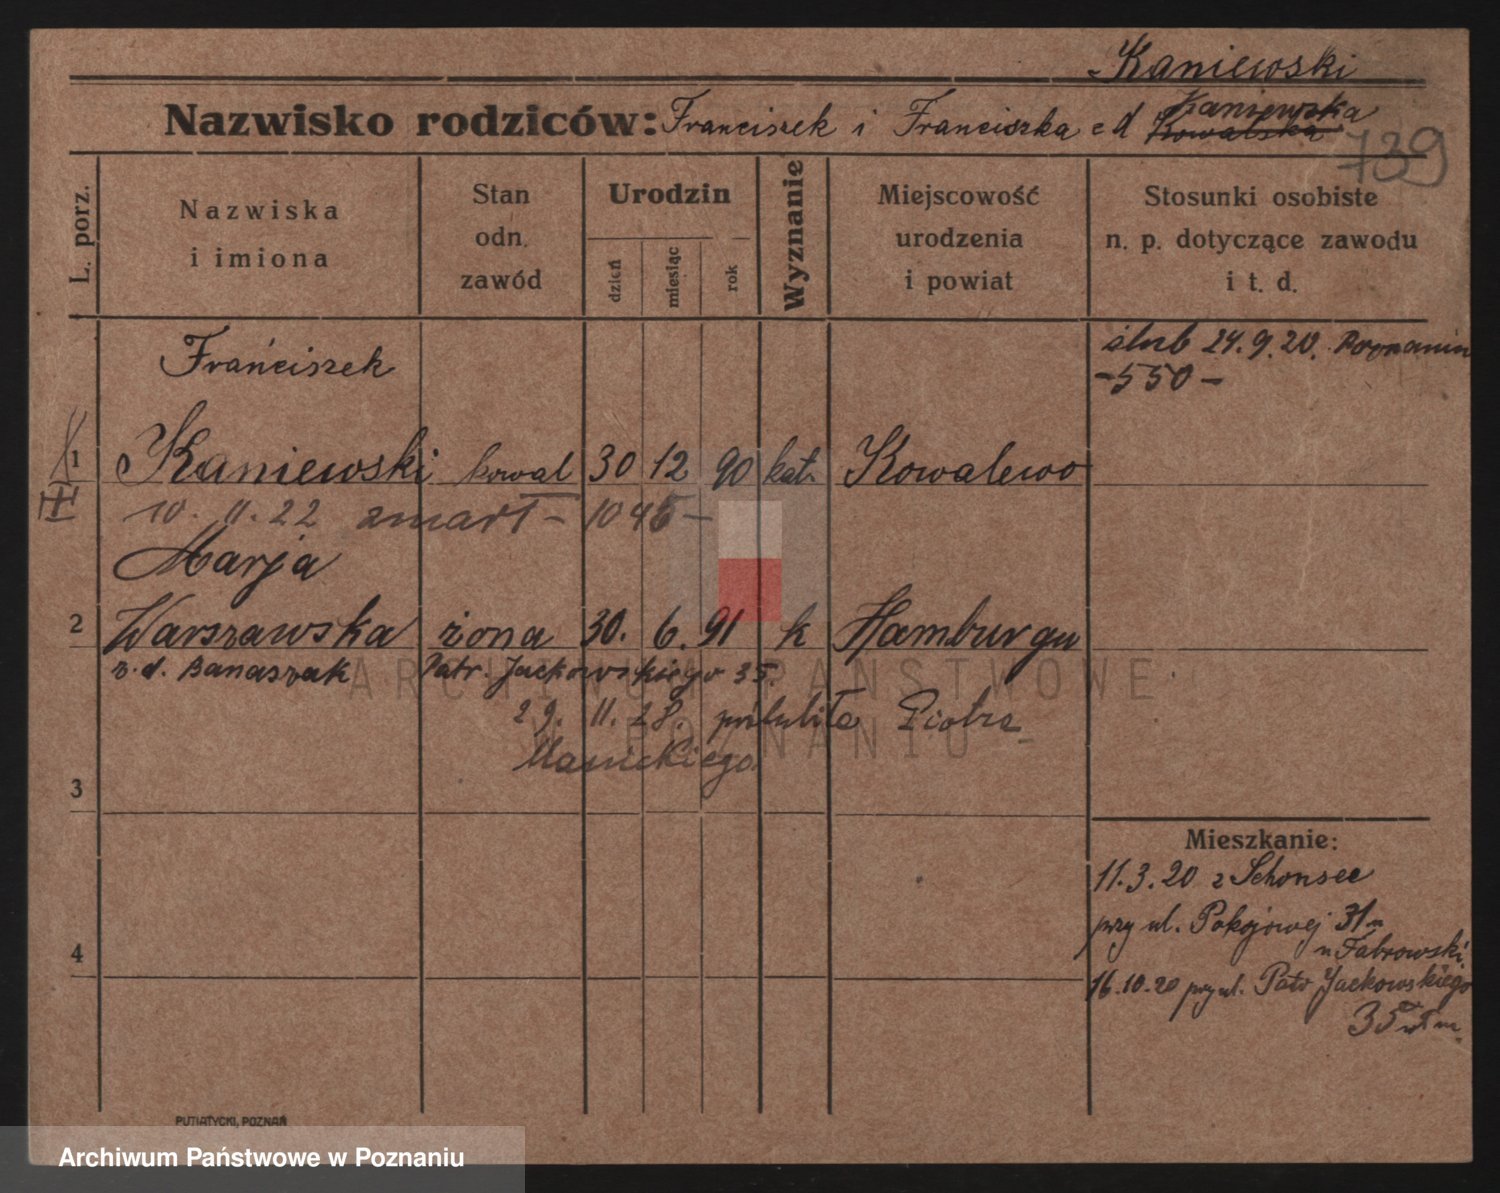 Kaniewski
Nazwisko rodziców: Franciszek i Franciszka z d Kaniewska
Kowalska
739
L. porz.
Nazwiska
i imiona
Stan
odn.
zawód
Urodzin
dzień
miesiąc
rok
Wyznanie
Miejscowość
urodzenia
i powiat
Stosunki osobiste
n. p. dotyczące zawodu
i t. d.
Franciszek
ślub 24.9.20. Poznaniu
-550-
1 Kaniewski kowal 30 12 90 kat. Kowalewo
10. 11. 22 zmarł - 1045 -
Marja
2 Warszawska żona 30. 6. 91 k Hamburgu
z. d. Banaszak Patr. Jackowskiego 35.
29. 11. 28. poślubiła Piotra
3
Mieszkanie:
11.3.20 z Schonsee
przy ul. Pokojowej 31
u Fabrowski
4
16.10.20 przy ul. Patr Jackowskiego
35
ARCHIWUM PAŃSTWOWE
W POZNANIU
PUTIATYCKI, POZNAŃ
Archiwum Państwowe w Poznaniu